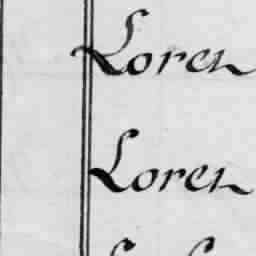 Loren
Loren